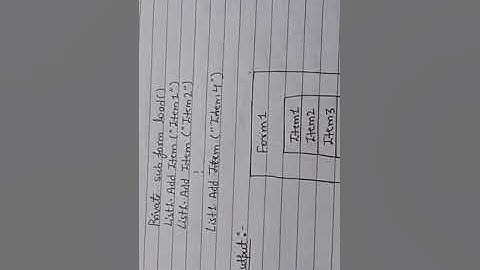 Private sub form load()
List1. Add Item ("Item1")
List1. Add Item ("Item2")
:
List1 Add Item ("Item4")
output :-
Form1
Item1
Item2
Item3